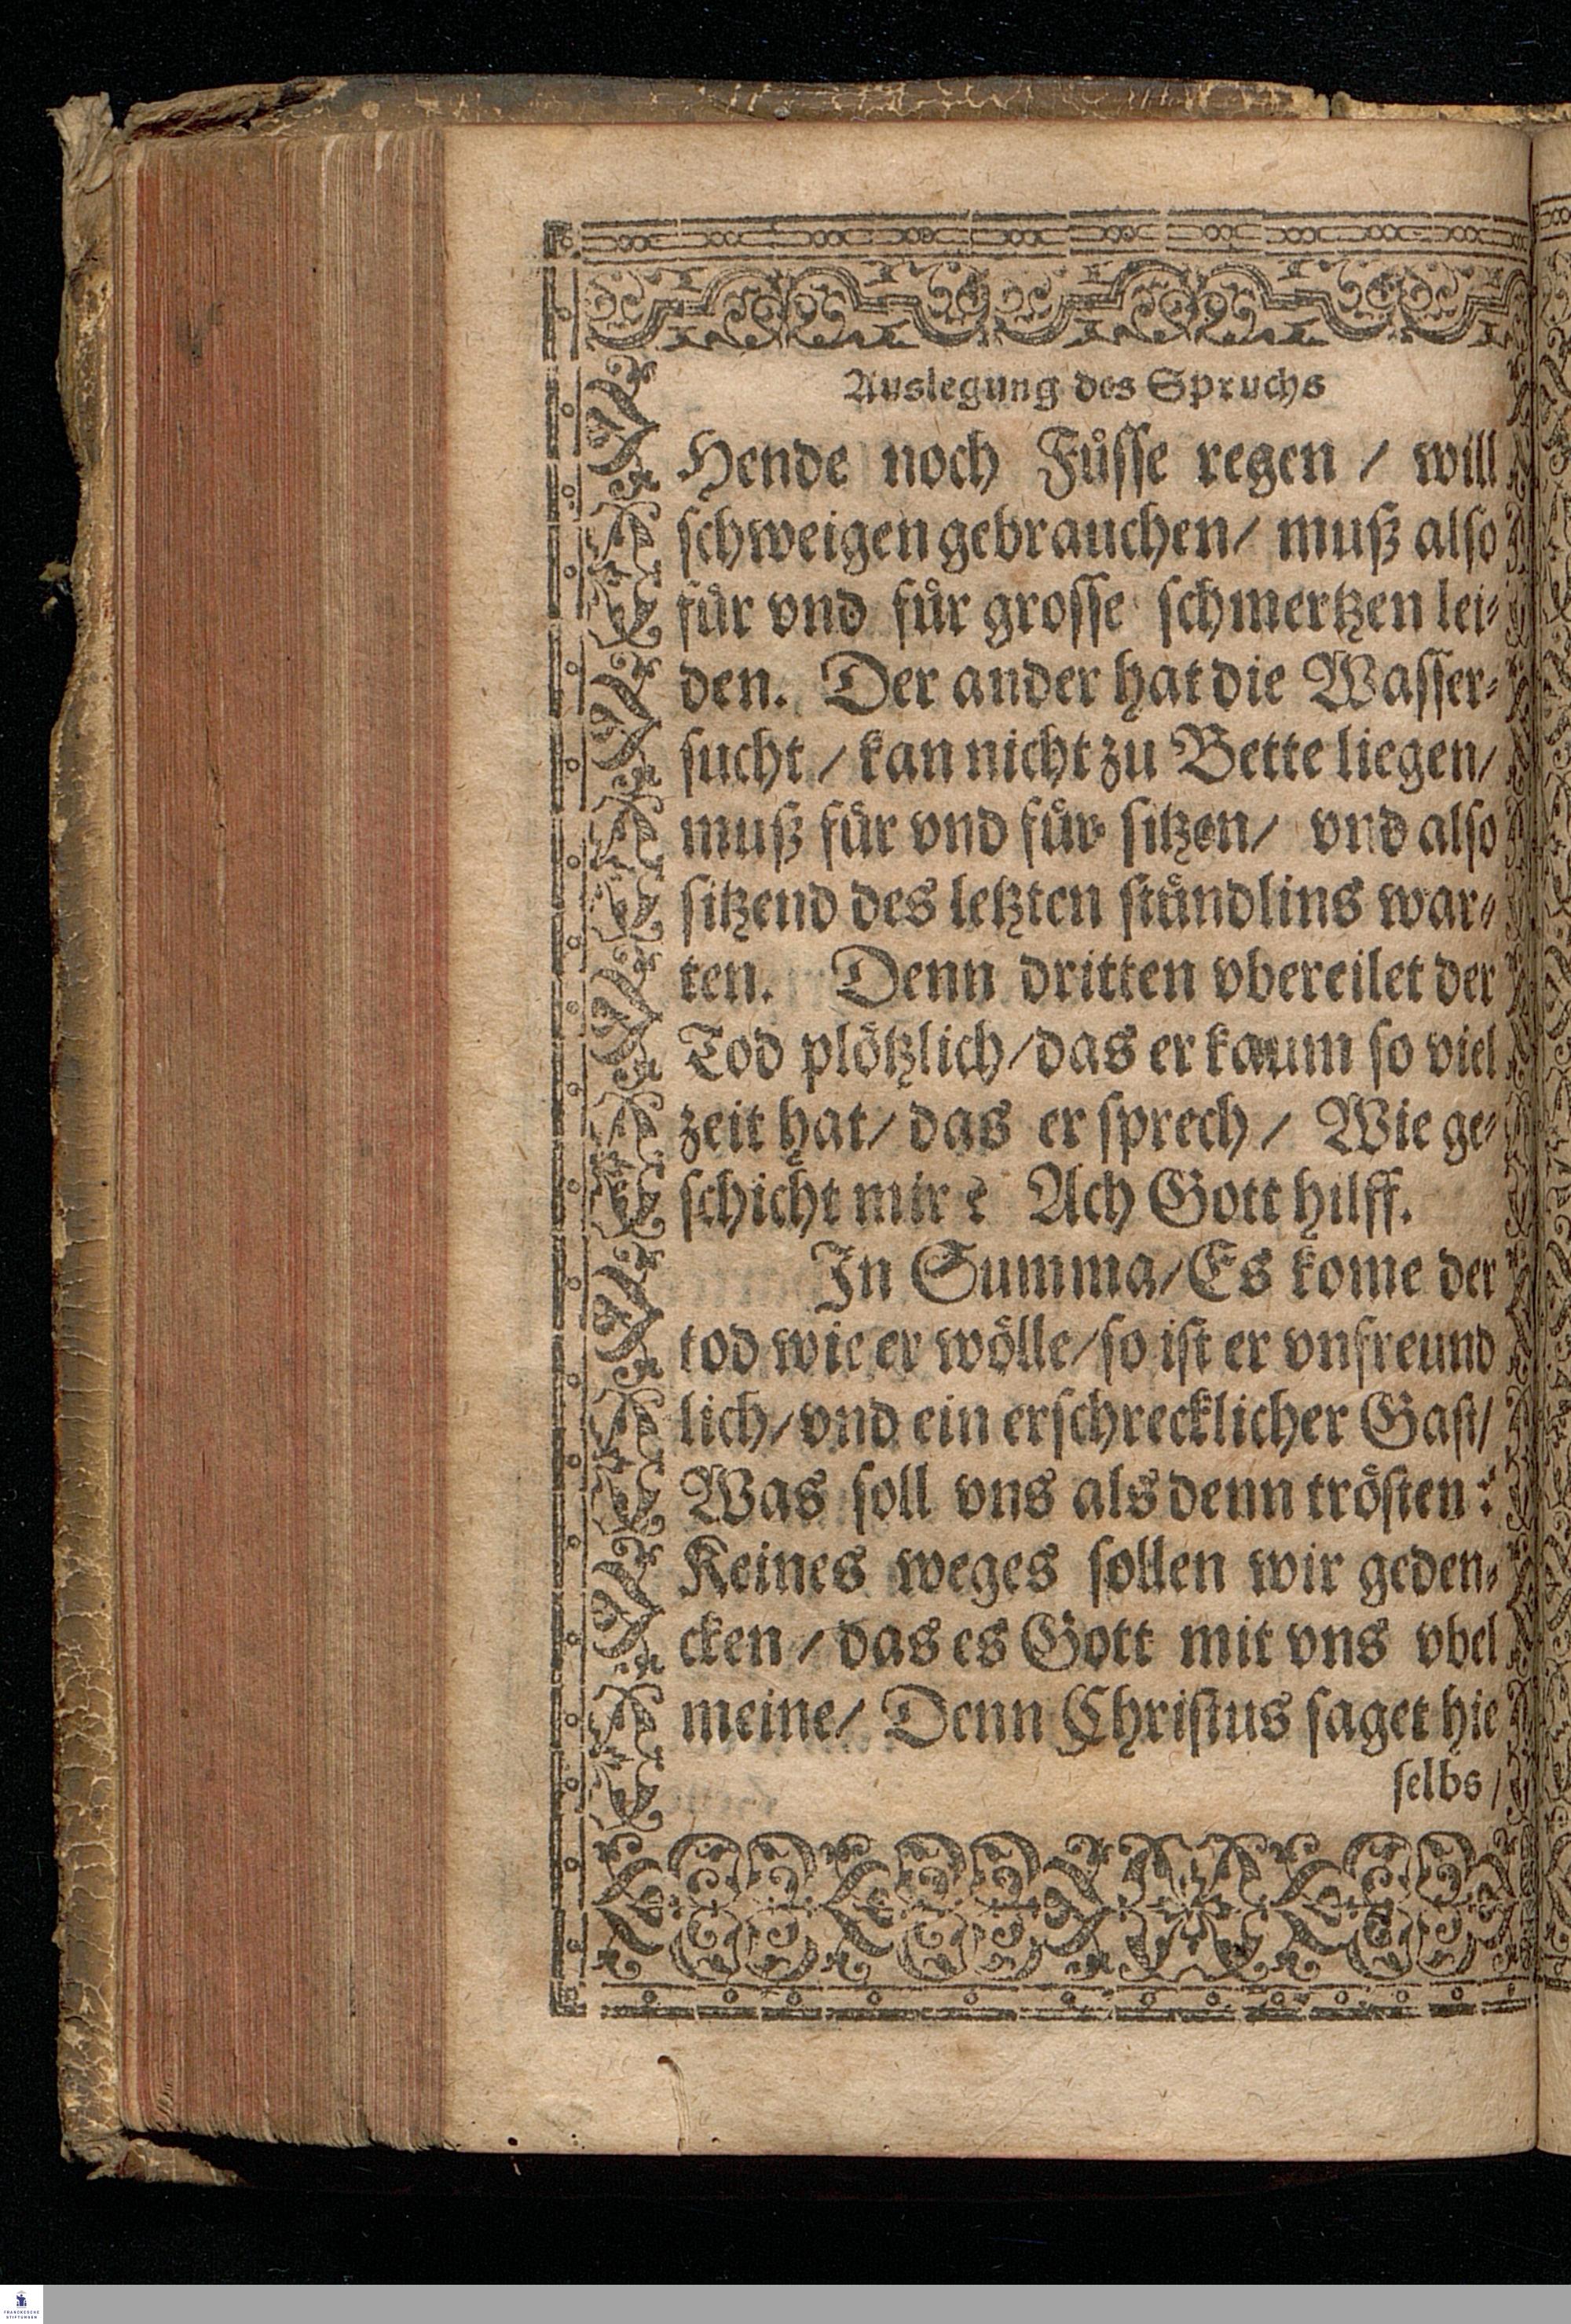 Auslegung des Spruchs
Hende noch Fuͤsse regen / will
schweigen gebrauchen / muß also
fuͤr vnd fuͤr grosse schmertzen lei⸗
den. Der ander hat die Wasser⸗
sucht / kan nicht zu Bette liegen /
muß fuͤr vnd fuͤr sitzen / vnd also
sitzend des letzten stuͤndlins war⸗
ten. Denn dritten vbereilet der
Tod ploͤtzlich / das er kaum so viel
zeit hat / das er sprech / Wie ge⸗
schicht mir? Ach Gott hilff.
In Summa / Es kome der
tod wie er woͤlle / so ist er vnfreund
lich / vnd ein erschrecklicher Gast /
Was soll vns als denn troͤsten?
Keines weges sollen wir geden⸗
cken / das es Gott mit vns vbel
meine / Denn Christus saget hie
selbs /
FRANCKESCHE
STIFTUNGEN